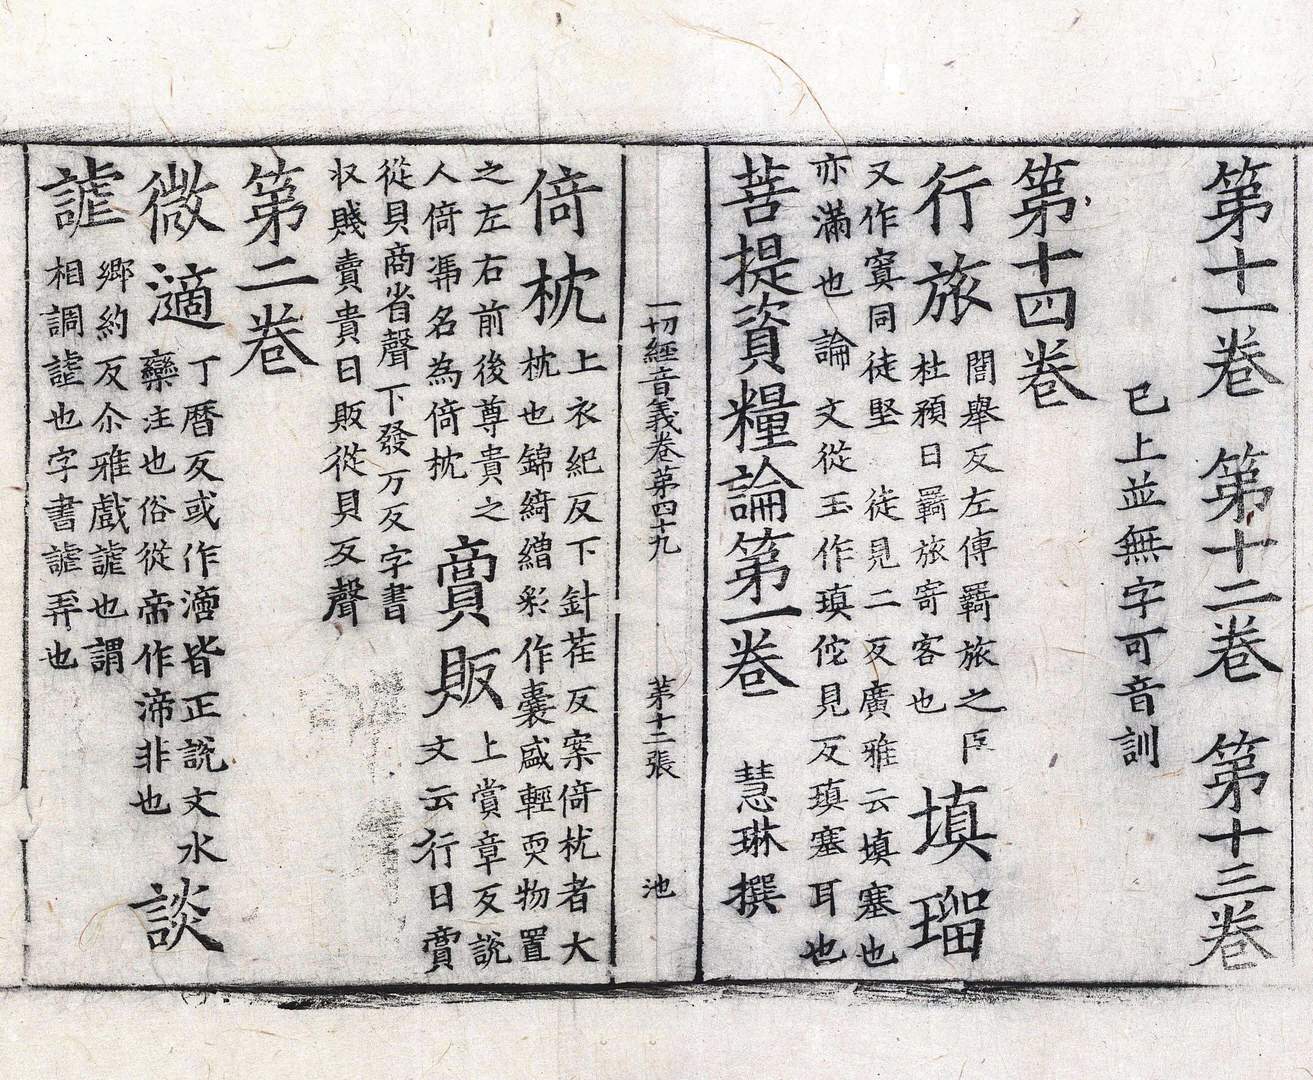 第十一卷　第十二卷　第十三卷
已上並無字可音訓
第十四卷
行旅
閭舉反左傳羇旅之臣
杜預曰羇旅寄客也
填瑠
又作窴同徒堅　徒見二反廣雅云填塞也
亦滿也　論文從玉作瑱佗見反瑱塞耳也
菩提資糧論第一卷　慧琳撰
一切經音義卷第四十九　第十二張　池
倚枕
上衣紀反下針荏反案倚枕者大
枕也錦綺繒彩作囊盛輕耎物置
之左右前後尊貴之
人倚馮名為倚枕
賣販
上賞章反說
文云行曰賣
從貝商省聲下發万反字書
収賤賣貴曰販從貝反聲
第二卷
微滴
丁曆反或作渧皆正說文水
欒注也俗從帝作渧非也
談
謔
鄉約反尒雅戲謔也謂
相調謔也字書謔弄也